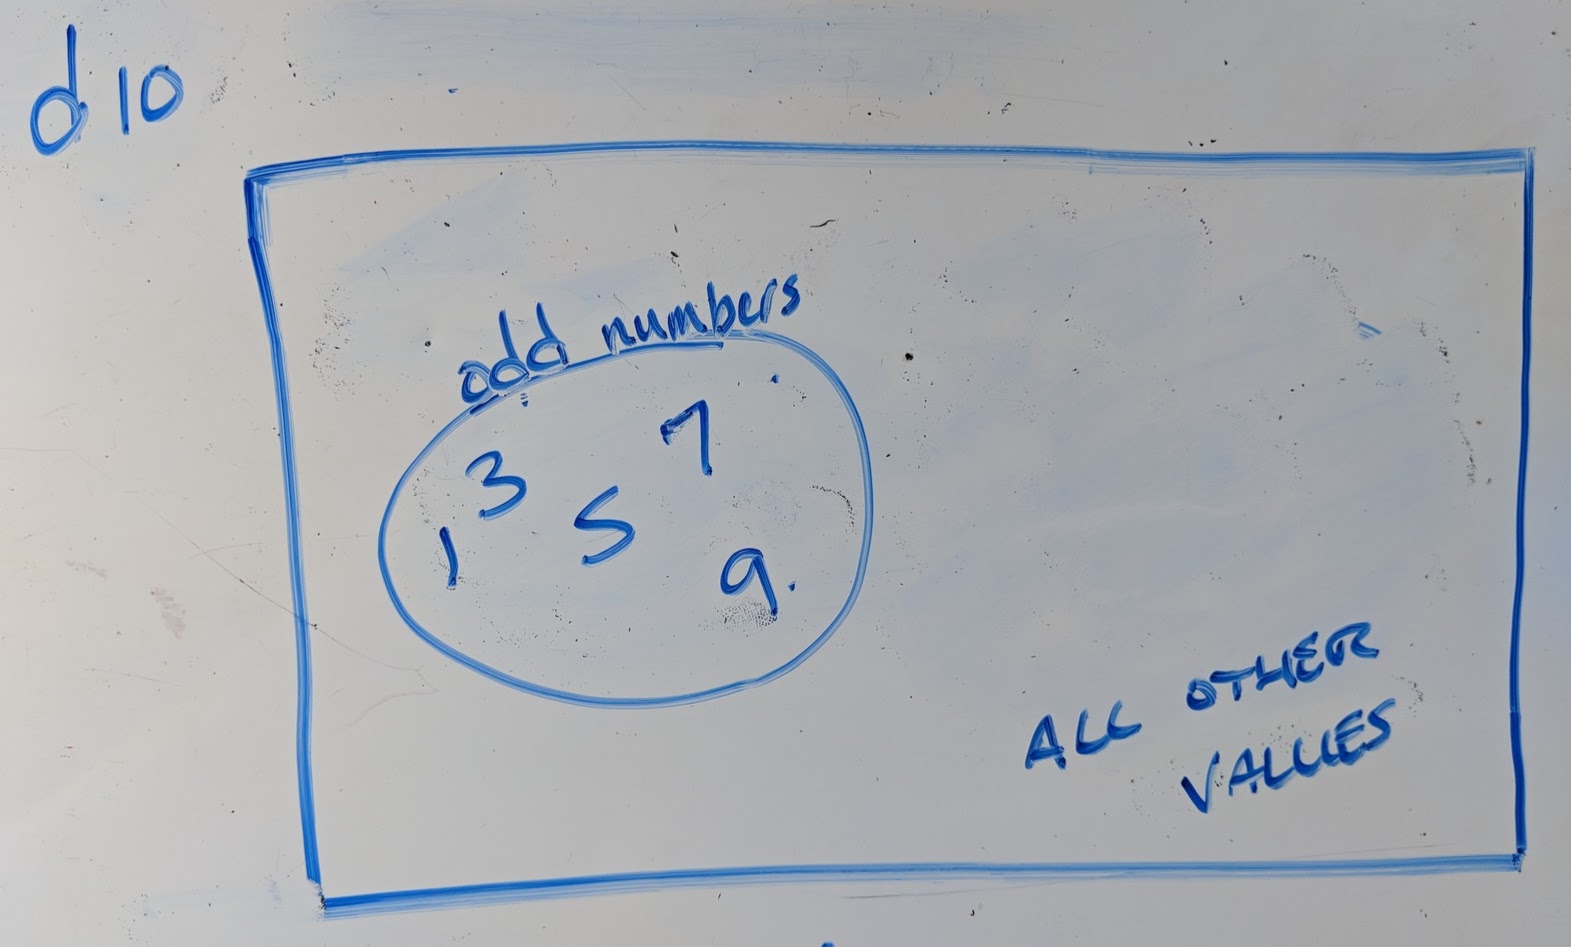 d10
odd numbers
7
3
5
1
9
ALL OTHER
VALUES